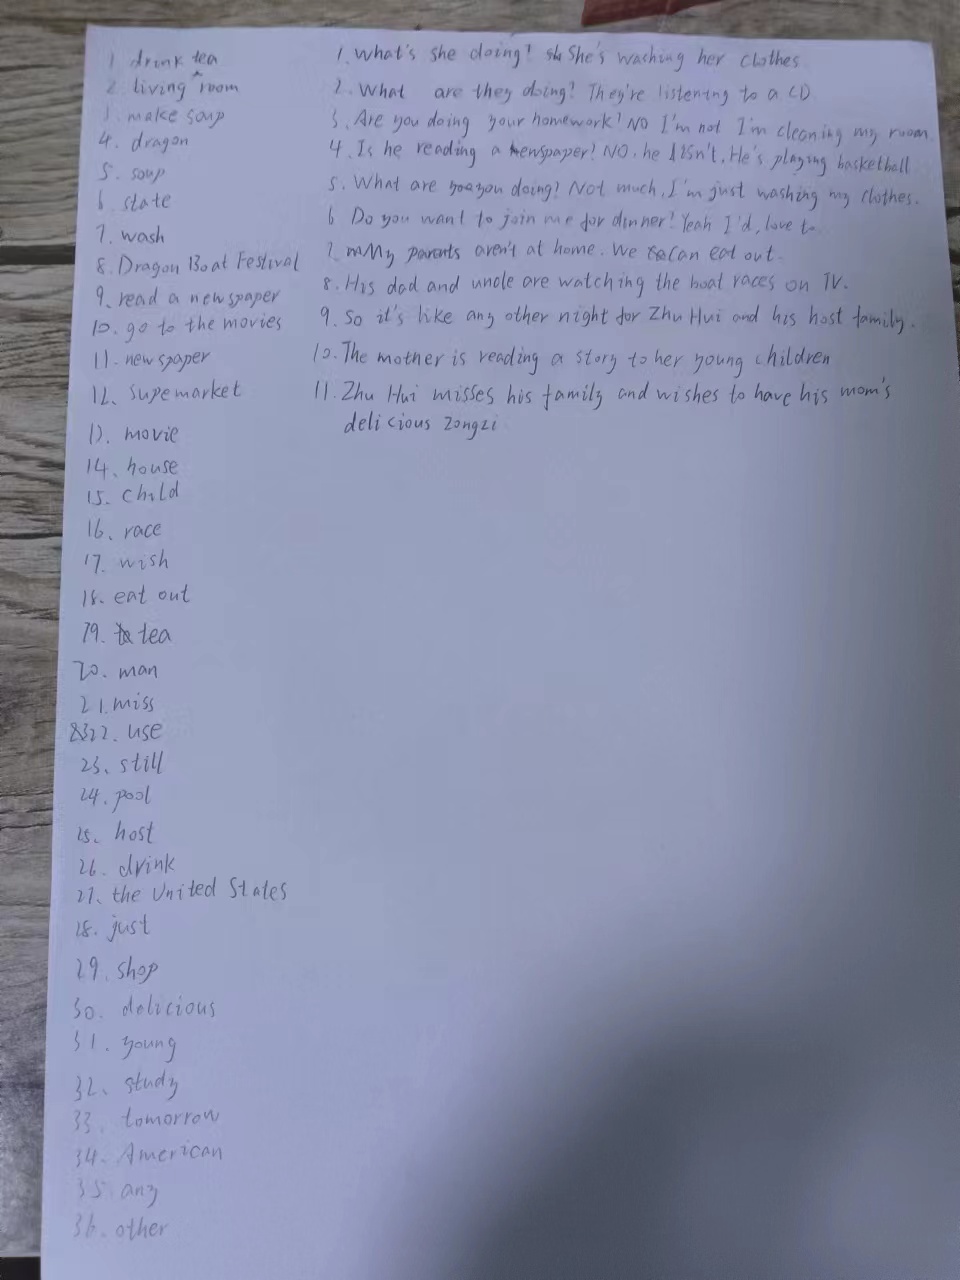 1. drink tea
2. living room
3. make soup
4. dragon
5. soup
6. state
7. wash
8. Dragon Boat Festival
9. read a newspaper
10. go to the movies
11. newspaper
12. supemarket
13. movie
14. house
15. child
16. race
17. wish
18. eat out
19. tea
20. man
21. miss
22. use
23. still
24. pool
25. host
26. drink
27. the United States
28. just
29. shop
30. delicious
31. young
32. study
33. tomorrow
34. American
35. any
36. other
1. What's she doing? She's washing her clothes
2. What are they doing? They're listening to a CD
3. Are you doing your homework? NO I'm not I'm cleaning my room.
4. Is he reading a newspaper? NO, he isn't. He's playing basketball
5. What are you doing? Not much. I'm just washing my clothes.
6. Do you want to join me for dinner? Yeah I'd, love to.
7. My parents aren't at home. We can eat out.
8. His dad and uncle are watching the boat races on TV.
9. So it's like any other night for Zhu Hui and his host family.
10. The mother is reading a story to her young children
11. Zhu Hui misses his family and wishes to have his mom's
delicious Zongzi